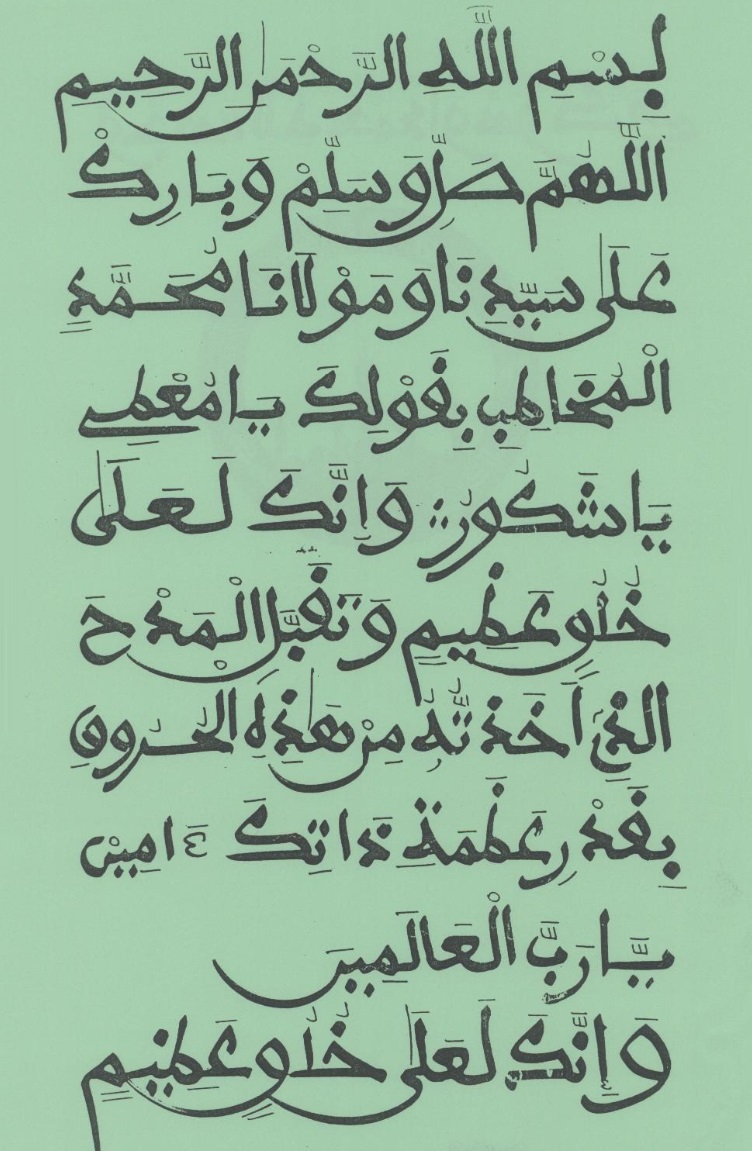 بِسْمِ اللَّهِ الرَّحْمَٰنِ الرَّحِيمِ
اللَّهُمَّ صَلِّ وَسَلِّمْ وَبَارِكْ
عَلَىٰ سَيِّدِنَا وَمَوْلَانَا مُحَمَّدٍ
الْمُخَاطَبِ بِقَوْلِكَ يَا مُعْطِي
يَا شَكُورُ وَإِنَّكَ لَعَلَىٰ
خُلُقٍ عَظِيمٍ وَتَقَبَّلِ الْمَدْحَ
الذِي أَخَذْتُهُ مِنْ هَٰذِهِ الْحُرُوفِ
بِقَدْرِ عَظَمَةِ ذَاتِكَ ءَامِينَ
يَا رَبَّ الْعَالَمِينَ
وَإِنَّكَ لَعَلَىٰ خُلُقٍ عَظِيمٍ